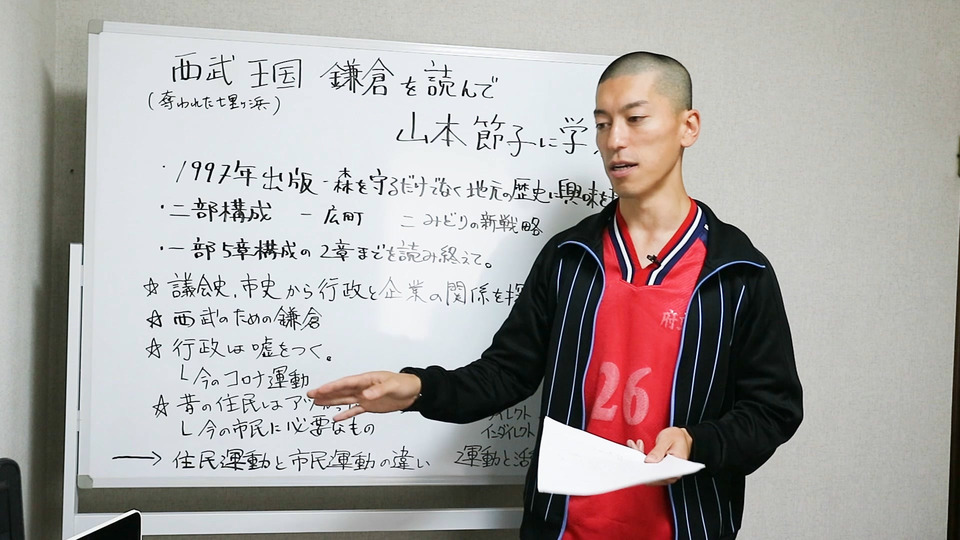 西武王国 鎌倉を読んで
(奪われた七里ヶ浜)
山本節子に学
・1997年出版-森を守るだけでなく地元の歴史に興味を
・二部構成 一 広町 二 みどりの新戦略
・一部5章構成の2章までを読み終えて。
☆ 議会史、市史から行政と企業の関係を探
☆ 西武のための鎌倉
☆ 行政は嘘をつく。
└今のコロナ運動
☆ 昔の住民はアツ
└今の市民に必要なもの
イレクト
インダイレクト
→ 住民運動と市民運動の違い 運動と活
府
26